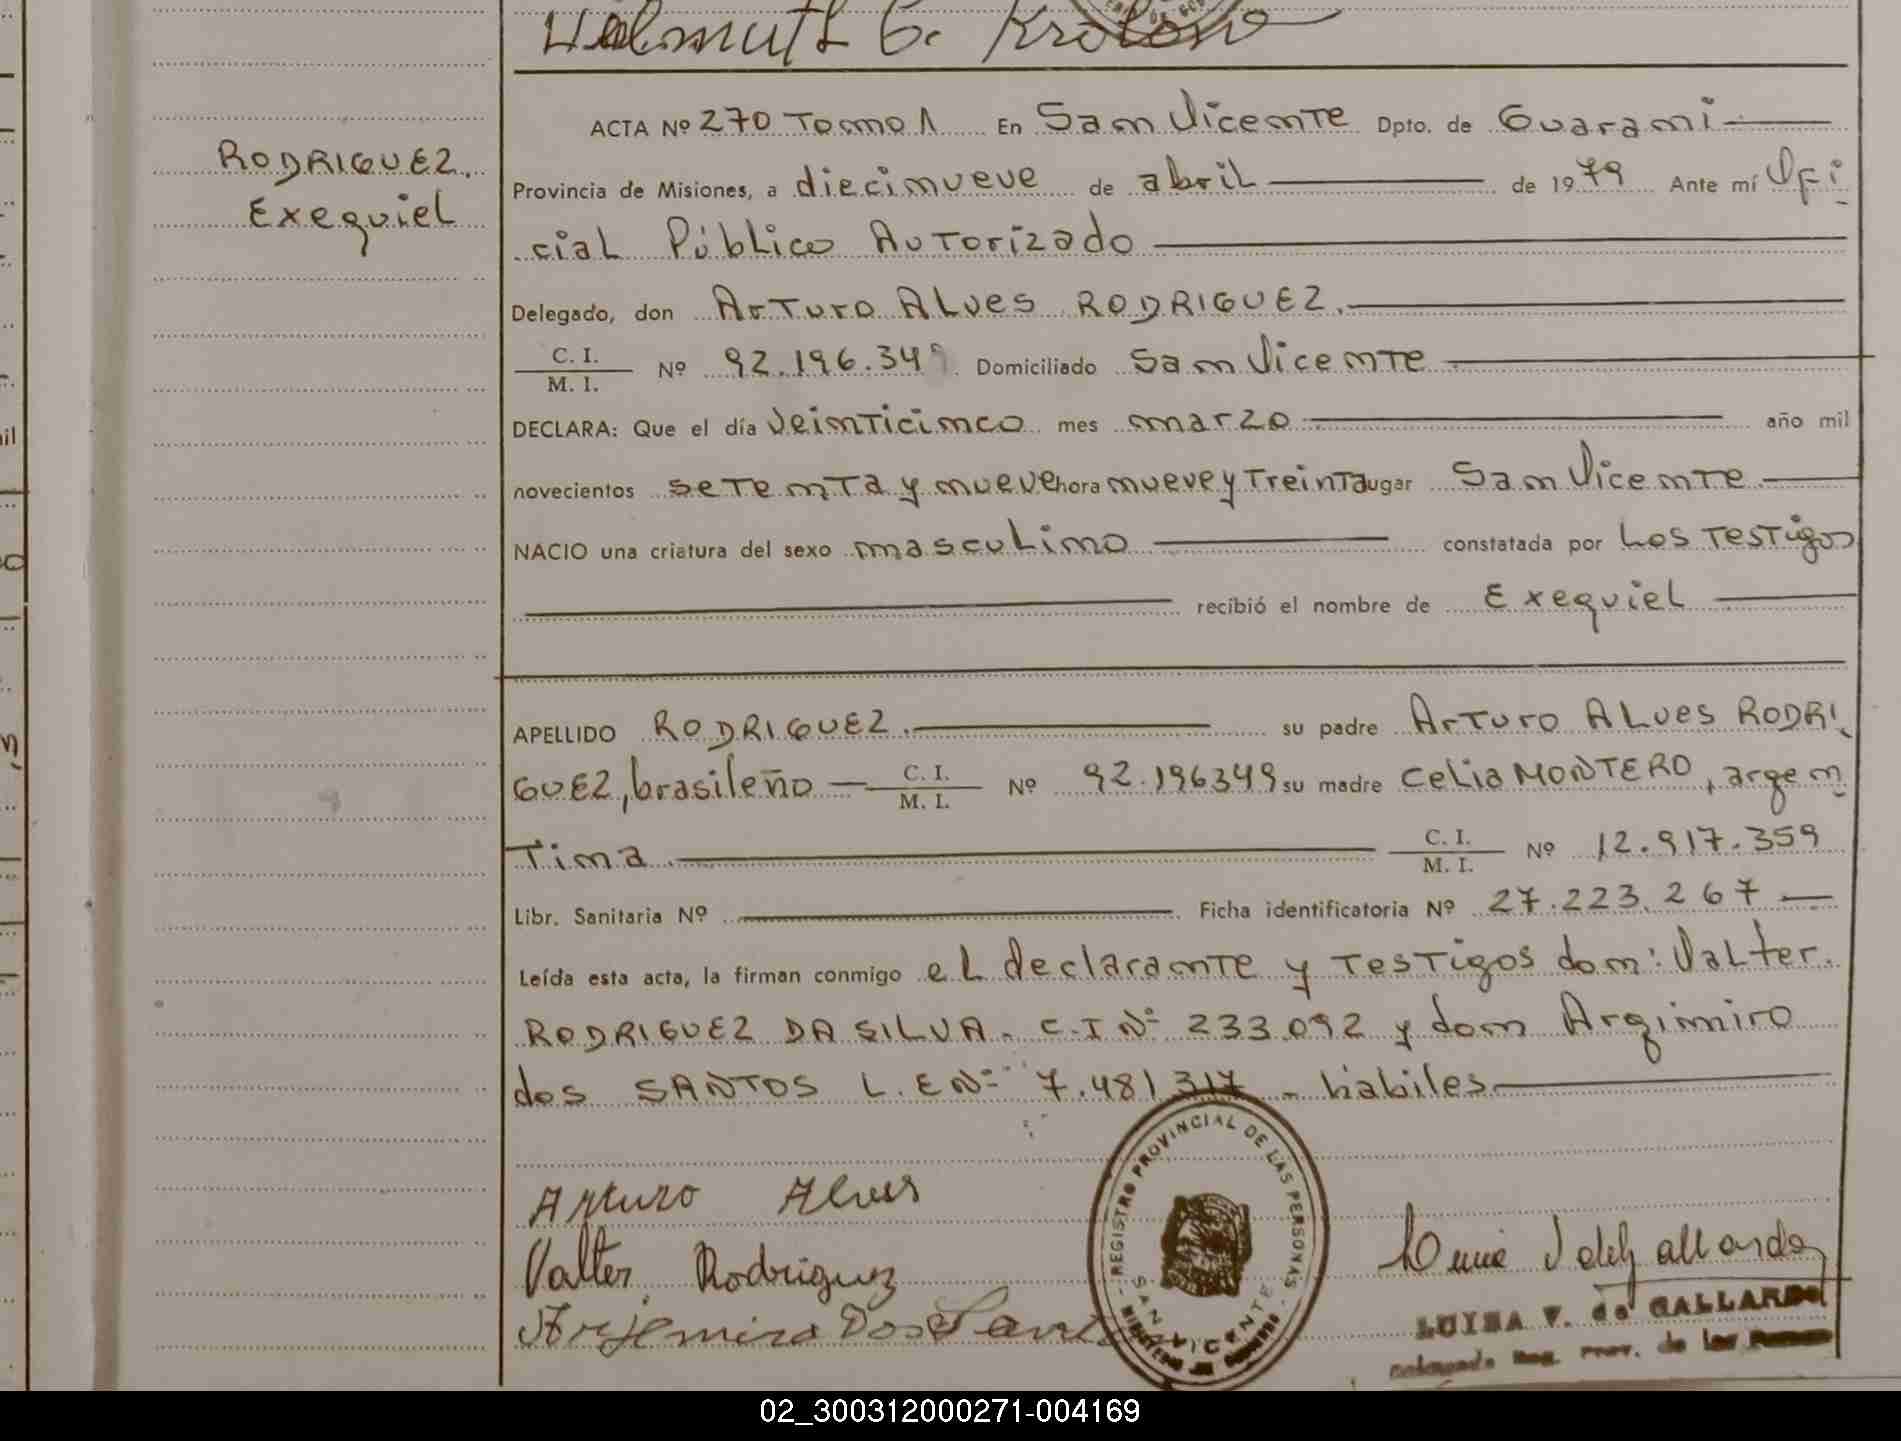 Helmuth G.
RODRIGUEZ.
Exequiel
ACTA Nº 270 Tomo 1 En San Vicente Dpto. de Guarani
Provincia de Misiones, a diecinueve de abril de 1979 Ante mí Ofi
cial Público Autorizado
Delegado, don Arturo ALves RODRIGUEZ.
C. I.
M. I. Nº 92.196.349 Domiciliado San Vicente
DECLARA: Que el día veinticinco mes marzo año mil
novecientos setenta y nueve hora nueve y treinta lugar San Vicente
NACIO una criatura del sexo masculino constatada por Los Testigos
recibió el nombre de Exequiel
APELLIDO RODRIGUEZ. su padre Arturo ALves RODRI
GUEZ, brasileño C. I.
M. I. Nº 92.196349 su madre Celia MONTERO, argen
tina C. I.
M. I. Nº 12.917.359
Libr. Sanitaria Nº Ficha identificatoria Nº 27.223.267
Leída esta acta, la firman conmigo el declarante y Testigos don: Valter
RODRIGUEZ DA SILVA. C.I Nº 233.092 y don Argimiro
dos SANTOS L.E Nº 7.481317 - habiles
Arturo Alves
Valter Rodriguez
Argemiro Dos Santos
REGISTRO PROVINCIAL DE LAS PERSONAS
SAN VICENTE
MINISTERIO DE GOBIERNO
LUISA V. de GALLARDO
Reg. Prov. de las Personas
02_300312000271-004169